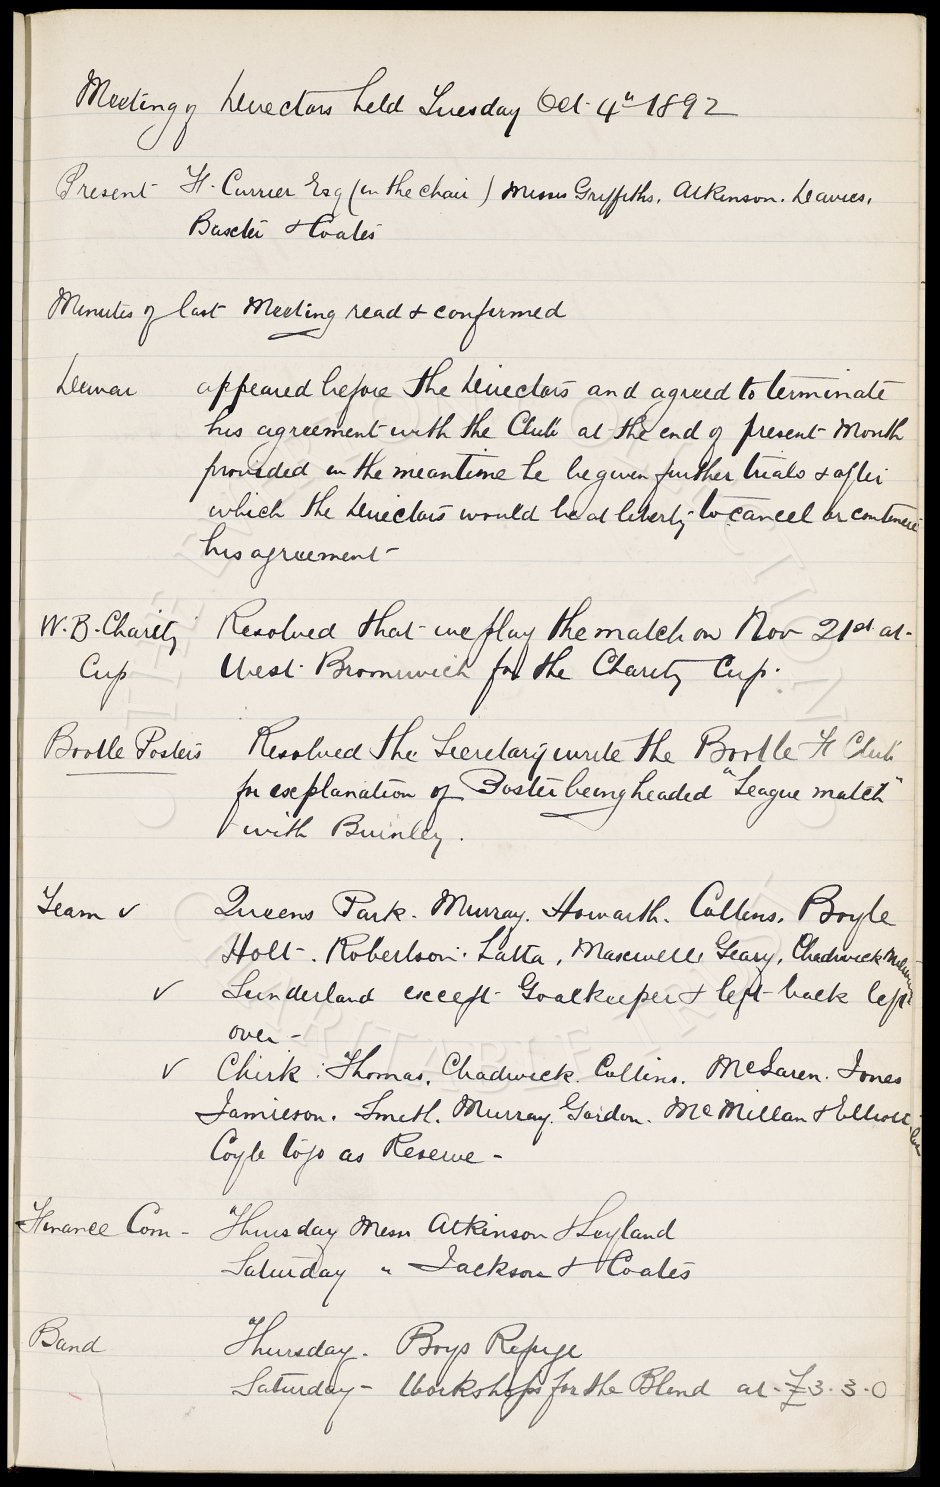 Meeting of Directors held Tuesday Oct 4th 1892
Present F. Currier Esq (in the chair) Messrs Griffiths, Atkinson. Davies,
Baxter & Coates
Minutes of last Meeting read & confirmed
Dewar appeared before the Directors and agreed to terminate
his agreement with the Club at the end of present Month
provided in the meantime he be given further trials & after
which the Directors would be at liberty to cancel or continue
his agreement
W.B. Charity Resolved that we play the match on Nov 21st at
Cup West Bromwich for the Charity Cup.
Bootle Posters Resolved the Secretary write the Bootle F Club
for explanation of Poster being headed "League match"
with Burnley.
Team ✓ Queens Park. Murray. Howarth. Collins. Boyle
Holt. Robertson. Latta, Maxwell, Geary, Chadwick Milward
✓ Sunderland except Goalkeeper & left back left
over -
✓ Chirk: Thomas, Chadwick. Collins. McLaren. Jones
Jamieson. Smith. Murray. Gordon. McMillan & Elliott
Coyle to go as Reserve -
Finance Com - Thursday Messrs Atkinson & Leyland
Saturday " Jackson & Coates
Band Thursday. Boys Refuge
Saturday - Workshops for the Blind at £3.3.0
THE EVERTON COLLECTION
CHARITABLE TRUST